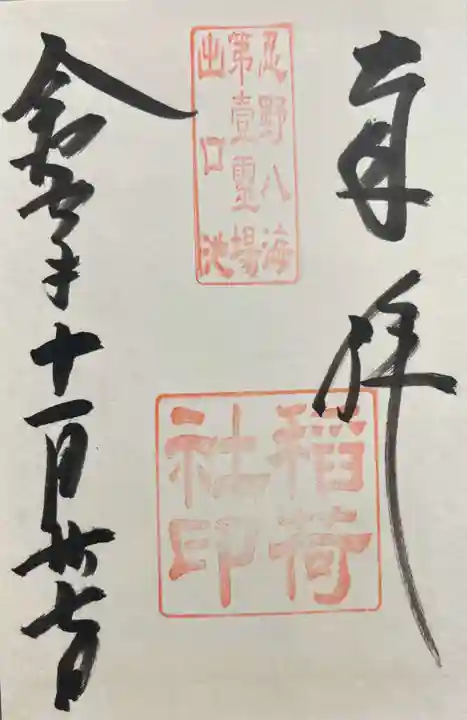 奉拝
忍野八海
第壹霊場
出口池
稲荷
社印
令和 年十一月廿七日